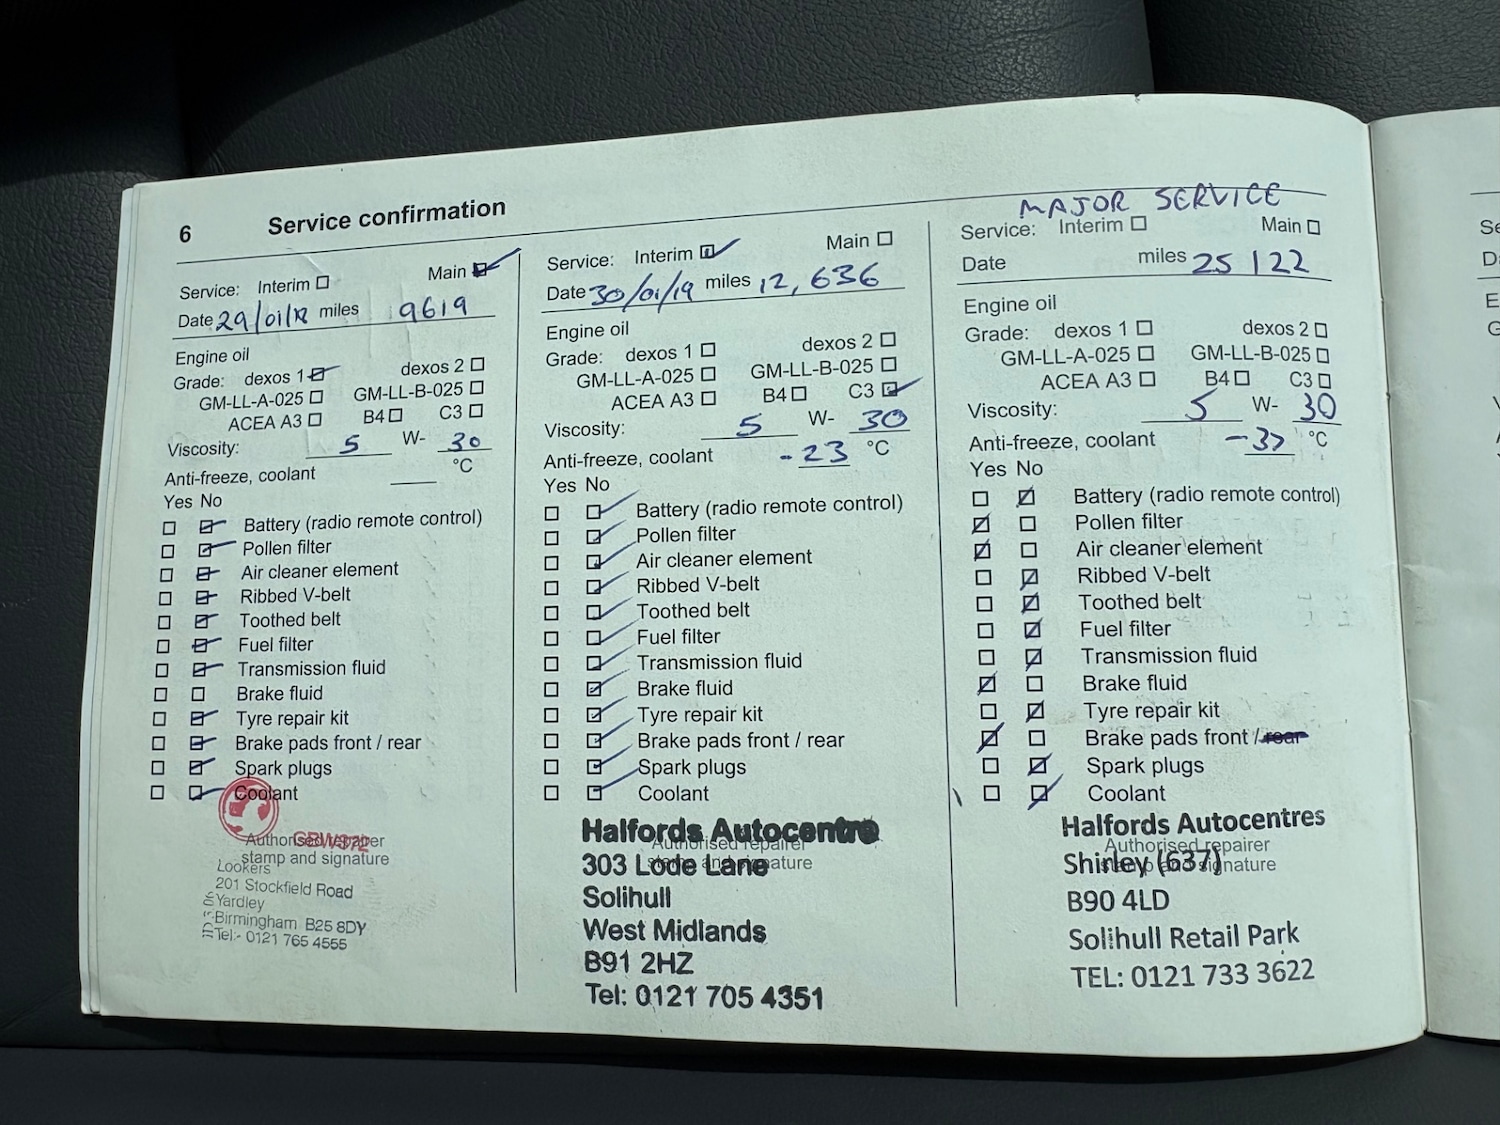 6 Service confirmation
Service: Interim Main
Date 29/01/18 miles 9619
Engine oil
Grade: dexos 1 dexos 2
GM-LL-A-025 GM-LL-B-025
ACEA A3 B4 C3
Viscosity: 5 W- 30
Anti-freeze, coolant °C
Yes No
Battery (radio remote control)
Pollen filter
Air cleaner element
Ribbed V-belt
Toothed belt
Fuel filter
Transmission fluid
Brake fluid
Tyre repair kit
Brake pads front / rear
Spark plugs
Coolant
Authorised repairer
stamp and signature
Lookers
201 Stockfield Road
Yardley
Birmingham B25 8DY
Tel:- 0121 765 4555
Service: Interim Main
Date 30/01/19 miles 12,636
Engine oil
Grade: dexos 1 dexos 2
GM-LL-A-025 GM-LL-B-025
ACEA A3 B4 C3
Viscosity: 5 W- 30
Anti-freeze, coolant -23 °C
Yes No
Battery (radio remote control)
Pollen filter
Air cleaner element
Ribbed V-belt
Toothed belt
Fuel filter
Transmission fluid
Brake fluid
Tyre repair kit
Brake pads front / rear
Spark plugs
Coolant
Halfords Autocentre
Authorised repairer
303 Lode Lane
stamp and signature
Solihull
West Midlands
B91 2HZ
Tel: 0121 705 4351
MAJOR SERVICE
Service: Interim Main
Date miles 25122
Engine oil
Grade: dexos 1 dexos 2
GM-LL-A-025 GM-LL-B-025
ACEA A3 B4 C3
Viscosity: 5 W- 30
Anti-freeze, coolant -37 °C
Yes No
Battery (radio remote control)
Pollen filter
Air cleaner element
Ribbed V-belt
Toothed belt
Fuel filter
Transmission fluid
Brake fluid
Tyre repair kit
Brake pads front / rear
Spark plugs
Coolant
Halfords Autocentres
Authorised repairer
Shirley (637)
stamp and signature
B90 4LD
Solihull Retail Park
TEL: 0121 733 3622